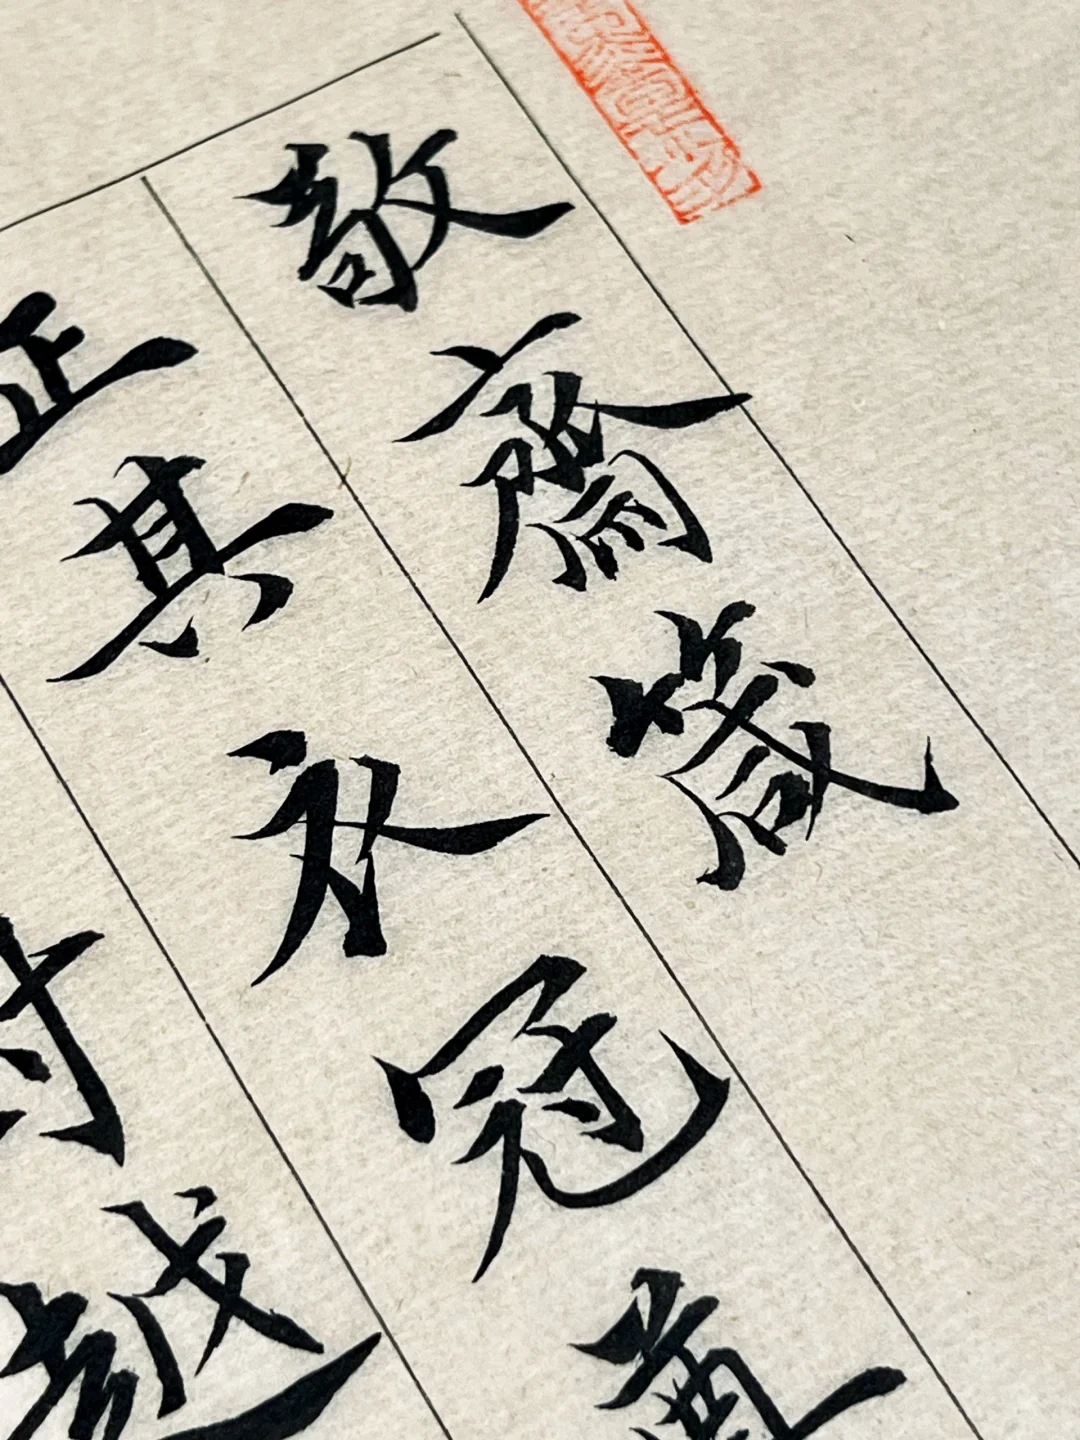 敬齋箴
正其衣冠尊
對越